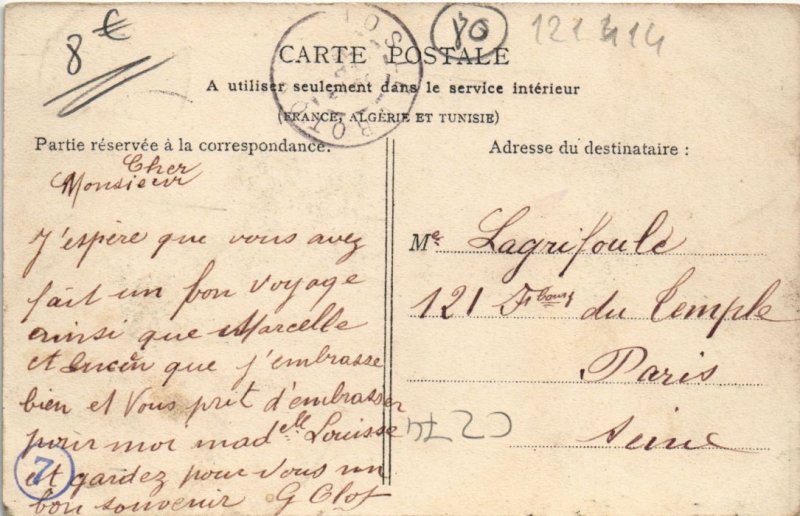 8€
80
121414
CARTE POSTALE
A utiliser seulement dans le service intérieur
(FRANCE, ALGÉRIE ET TUNISIE)
Partie réservée à la correspondance.
Cher
Monsieur
J'espère que vous avez
fait un bon voyage
ainsi que Marcelle
et que j'embrasse
bien et Vous prit d'embrasser
pour moi mad elle Louisse
et gardez pour vous un
bon souvenir G Olof
7
Adresse du destinataire :
Me Lagrifoule
121 Fbourg du Temple
Paris
Seine